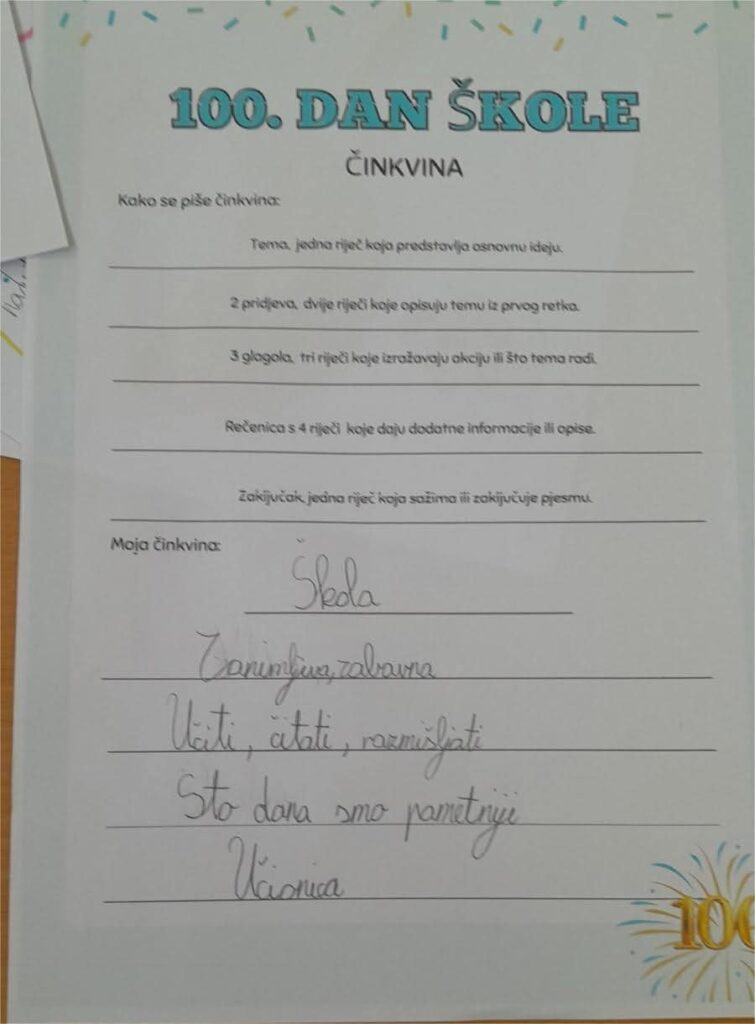 100. DAN ŠKOLE
ČINKVINA
Kako se piše činkvina:
Tema, jedna riječ koja predstavlja osnovnu ideju.
2 pridjeva, dvije riječi koje opisuju temu iz prvog retka.
3 glagola, tri riječi koje izražavaju akciju ili što tema radi.
Rečenica s 4 riječi koje daju dodatne informacije ili opise.
Zaključak, jedna riječ koja sažima ili zaključuje pjesmu.
Moja činkvina:
Škola
Zanimljiva, zabavna
Učiti, čitati, razmišljati
Sto dana smo pametniji
Učionica
100